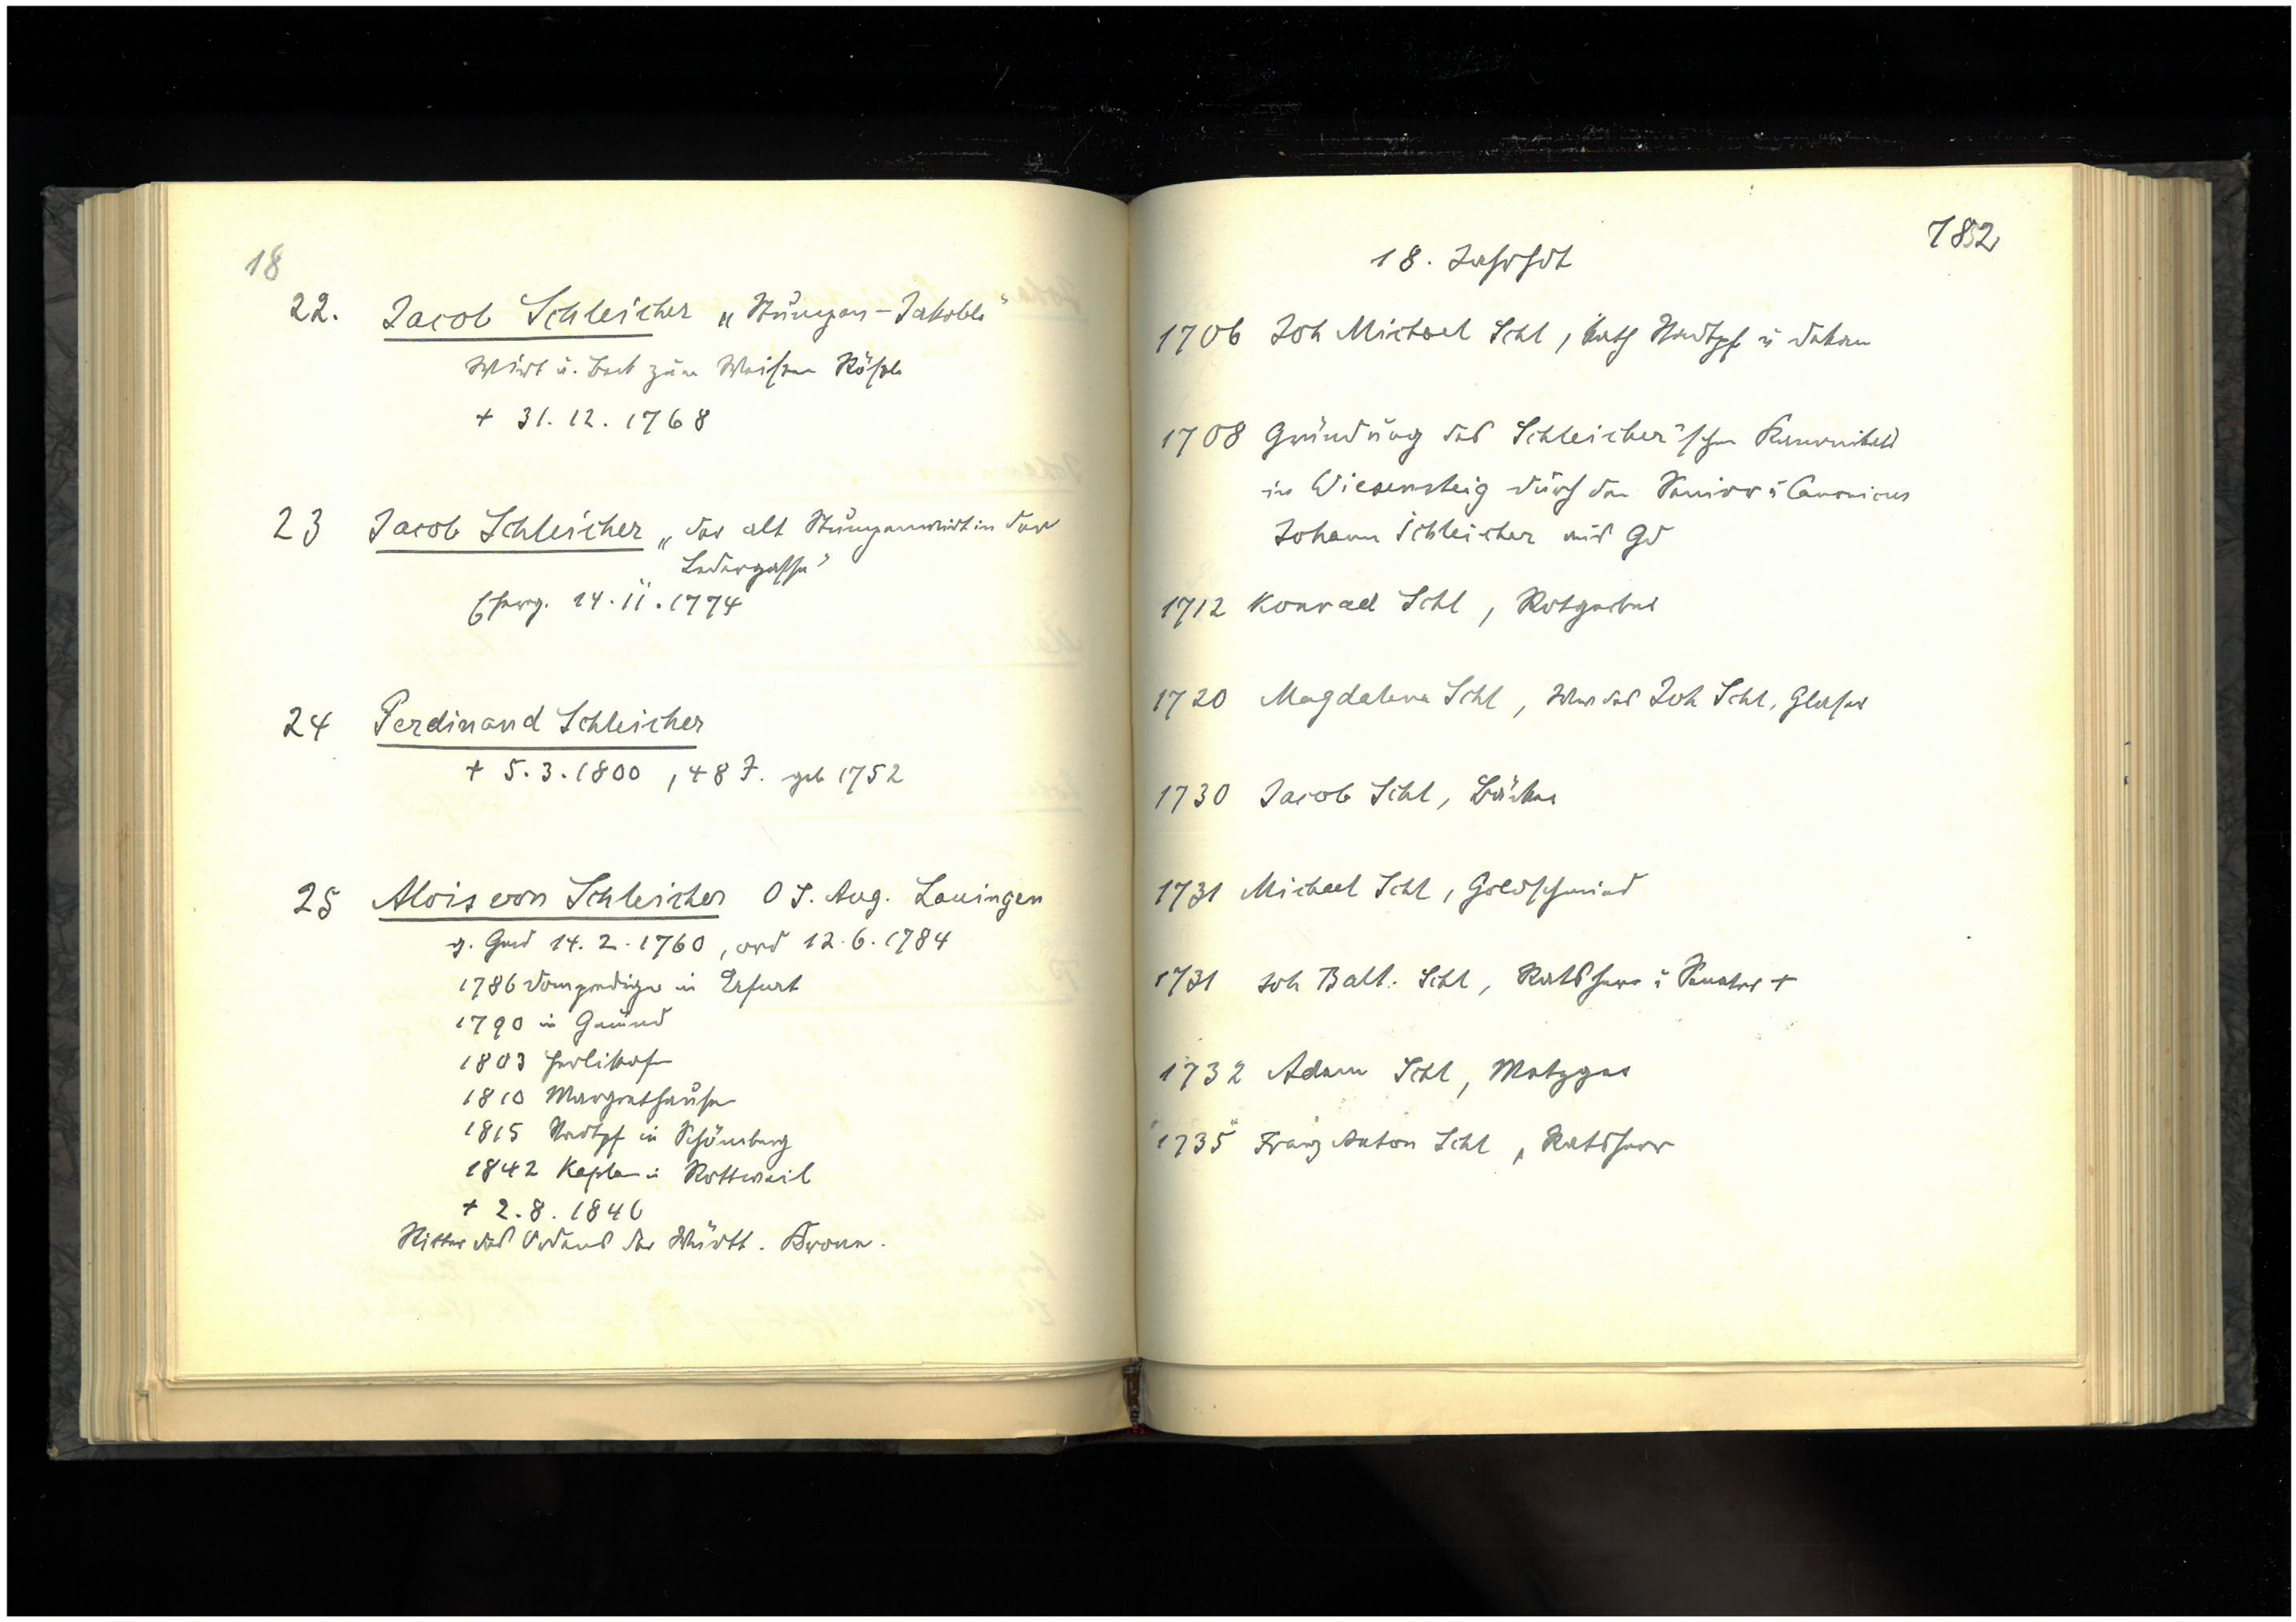 18
22. Jacob Schleicher „Stumpen-Jakoble"
Wirt u. Beck zum Weißen Rößle
+ 31.12.1768
23 Jacob Schleicher „der alt Stumpenwirt in der
Ledergasse"
Eherg. 14.II.1774
24 Ferdinand Schleicher
+ 5.3.1800, 48 J. geb 1752
25 Alois von Schleicher O S. Aug. Lauingen
g. Gmd 14.2.1760, ord 12.6.1784
1786 Domprediger in Erfurt
1790 in Gmünd
1803 Herlikofen
1810 Margrethausen
1815 Stadtpf in Schömberg
1842 Kaplan in Rottweil
+ 2.8.1846
Ritter des Ordens der Württ. Krone.
182
18. Jahrhdt
1706 Joh Michael Schl, kath Stadtpf u Dekan
1708 Gründung des Schleicher'schen Kanonikats
in Wiesensteig durch den Senior u Canonicus
Johann Schleicher aus Gd
1712 Konrad Schl, Rotgerber
1720 Magdalena Schl, Wwe des Joh Schl, Glaser
1730 Jacob Schl, Bäcker
1731 Michael Schl, Goldschmied
1731 Joh Balt. Schl, Ratsherr u Senator +
1732 Adam Schl, Metzger
1735 Franz Anton Schl, Ratsherr